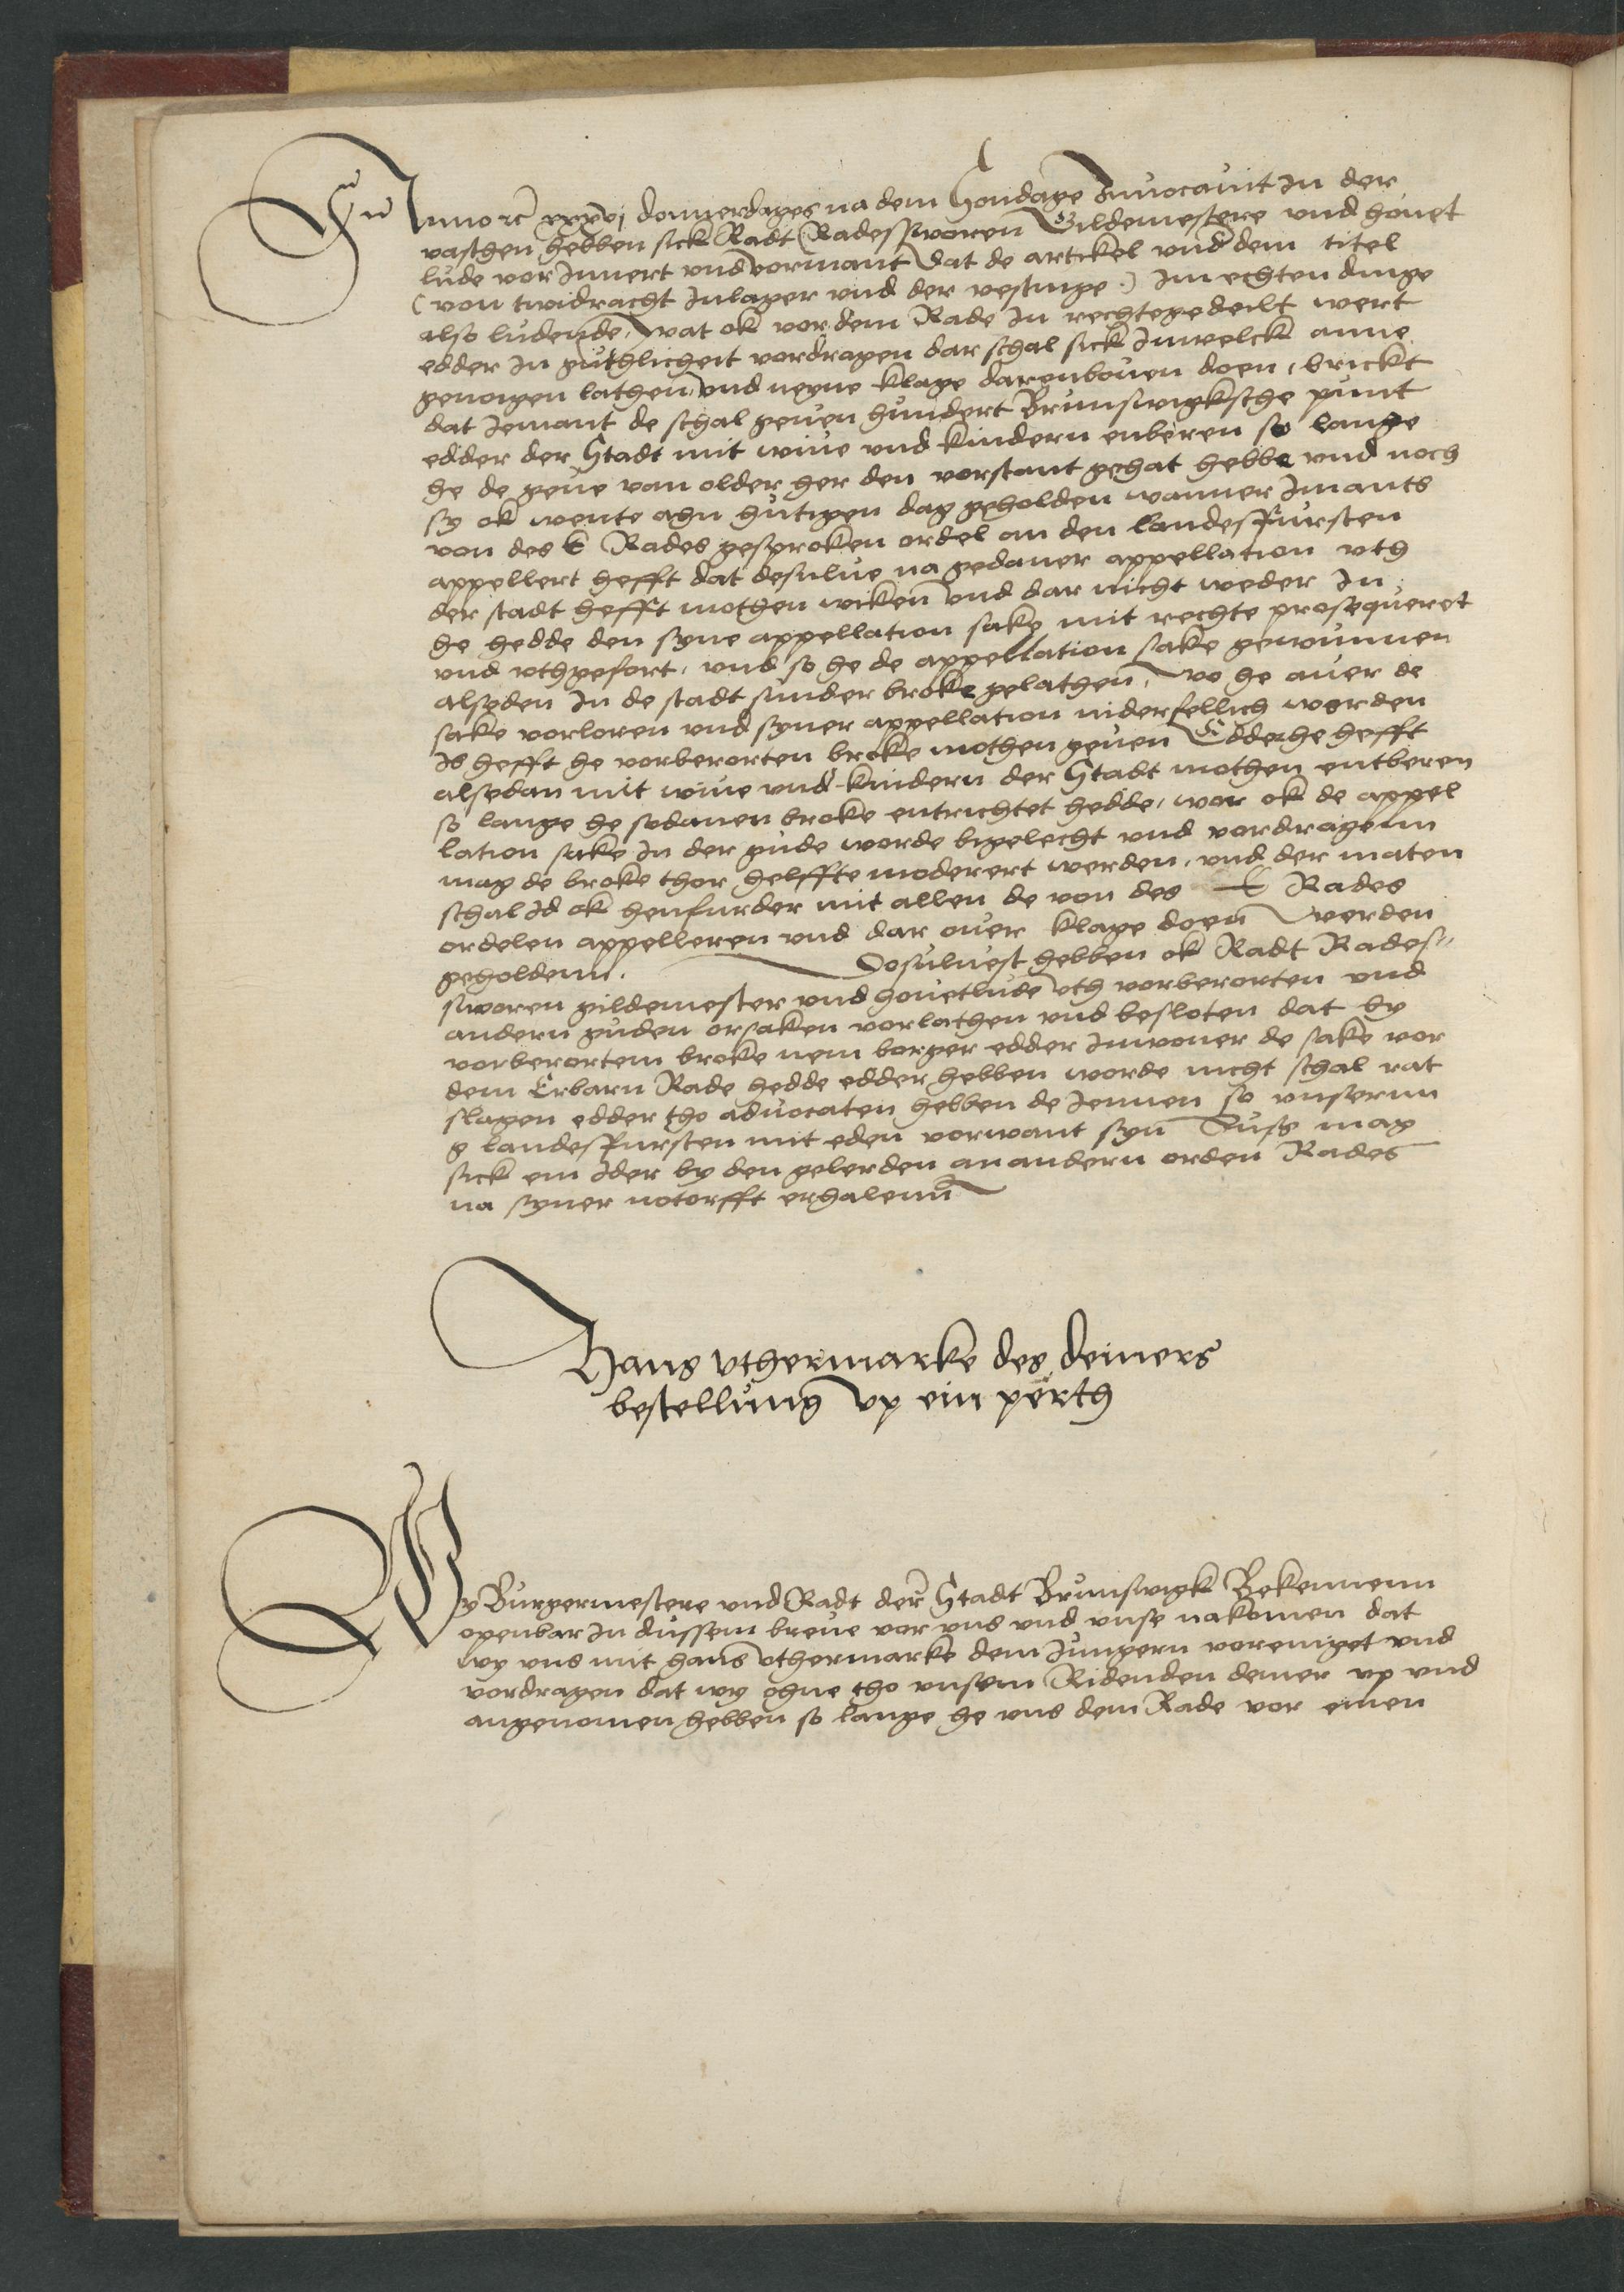 In Anno rc xxxvj donnerdages na dem Sondage Inuocauit In der
vasthen hebben sick Radt Radessworen Gildemestere vnd houet
lude vor Innert vnd vormant dat de artickel vnd dem titel
(von twidracht Inlager vnd der vestinge.) Im echten dinge
also ludende, wat ok vor dem Rade In rechte gedeilt wert
edder In guthlicheit vordragen dar schal sick Inwelck anne
genoigen lathen, vnd neyne klage darenbouen doen, brickt
dat Iemant de schal geuen hundert Brunswigksche punt
edder der Stadt mit wiue vnd kindern enberen so lange
he de geue van older her den vorstant gehat hebbe vnd noch
sy ok wente ahn hutigen dag geholden wanner Imants
von des E Rades gesproken ordel an den landesfursten
appellert hefft dat desulue na gedaner appellation vth
der stadt hefft mothen wiken vnd dar nicht weder In
he hedde den syne appellation sake mit rechte prosequeret
vnd vthgefort, vnd so he de appellation sake gewunnen
alseden In de stadt sunder broke gelathen, wo he auer de
sake vorloren vnd syner appellation niderfellich worden
Is hefft he vorberorten broke mothen geuen Edder he hefft
alsedan mit wiue vnd kindern der Stadt mothen entberen
so lange he sodanen broke entrichtet hedde, wor ok de appel
lation sake In der gude worde bigelecht vnd vordragenn
mag de broke thor helffte moderert werden, vnd der maten
schal Id ok henfurder mit allen de von des E Rades
ordelen appelleren vnd dar ouer klage doen werden
geholdenn. Dosuluest hebben ok Radt Rades-
sworen gildemester vnd houetlude vth vorberorten vnd
andern guden orsaken vorlathen vnd besloten dat by
vorberortem broke nem borger edder Inwoner de sake vor
dem Erbarn Rade hedde edder hebben worde nicht schal rat
slagen edder tho aduocaten hebben de Iennen so vnsernn
g landesfursten mit eden vorwant syn Suss mag
sick ein Ider by den gelerden an andern orden Rades
na syner notorfft erhalenn
Hans vthermarke des deiners
bestellung vp ein perth
Wy Burgermestere vnd Radt der Stadt Brunswigk Bekennenn
openbar In dussem breue vor vns vnd vnse nakomen dat
wy vns mit hans vthermarke dem Jungern voreniget vnd
vordragen dat wy ohne tho vnsem Ridenden deiner vp vnd
angenomen hebben so lange he vns dem Rade vor einen